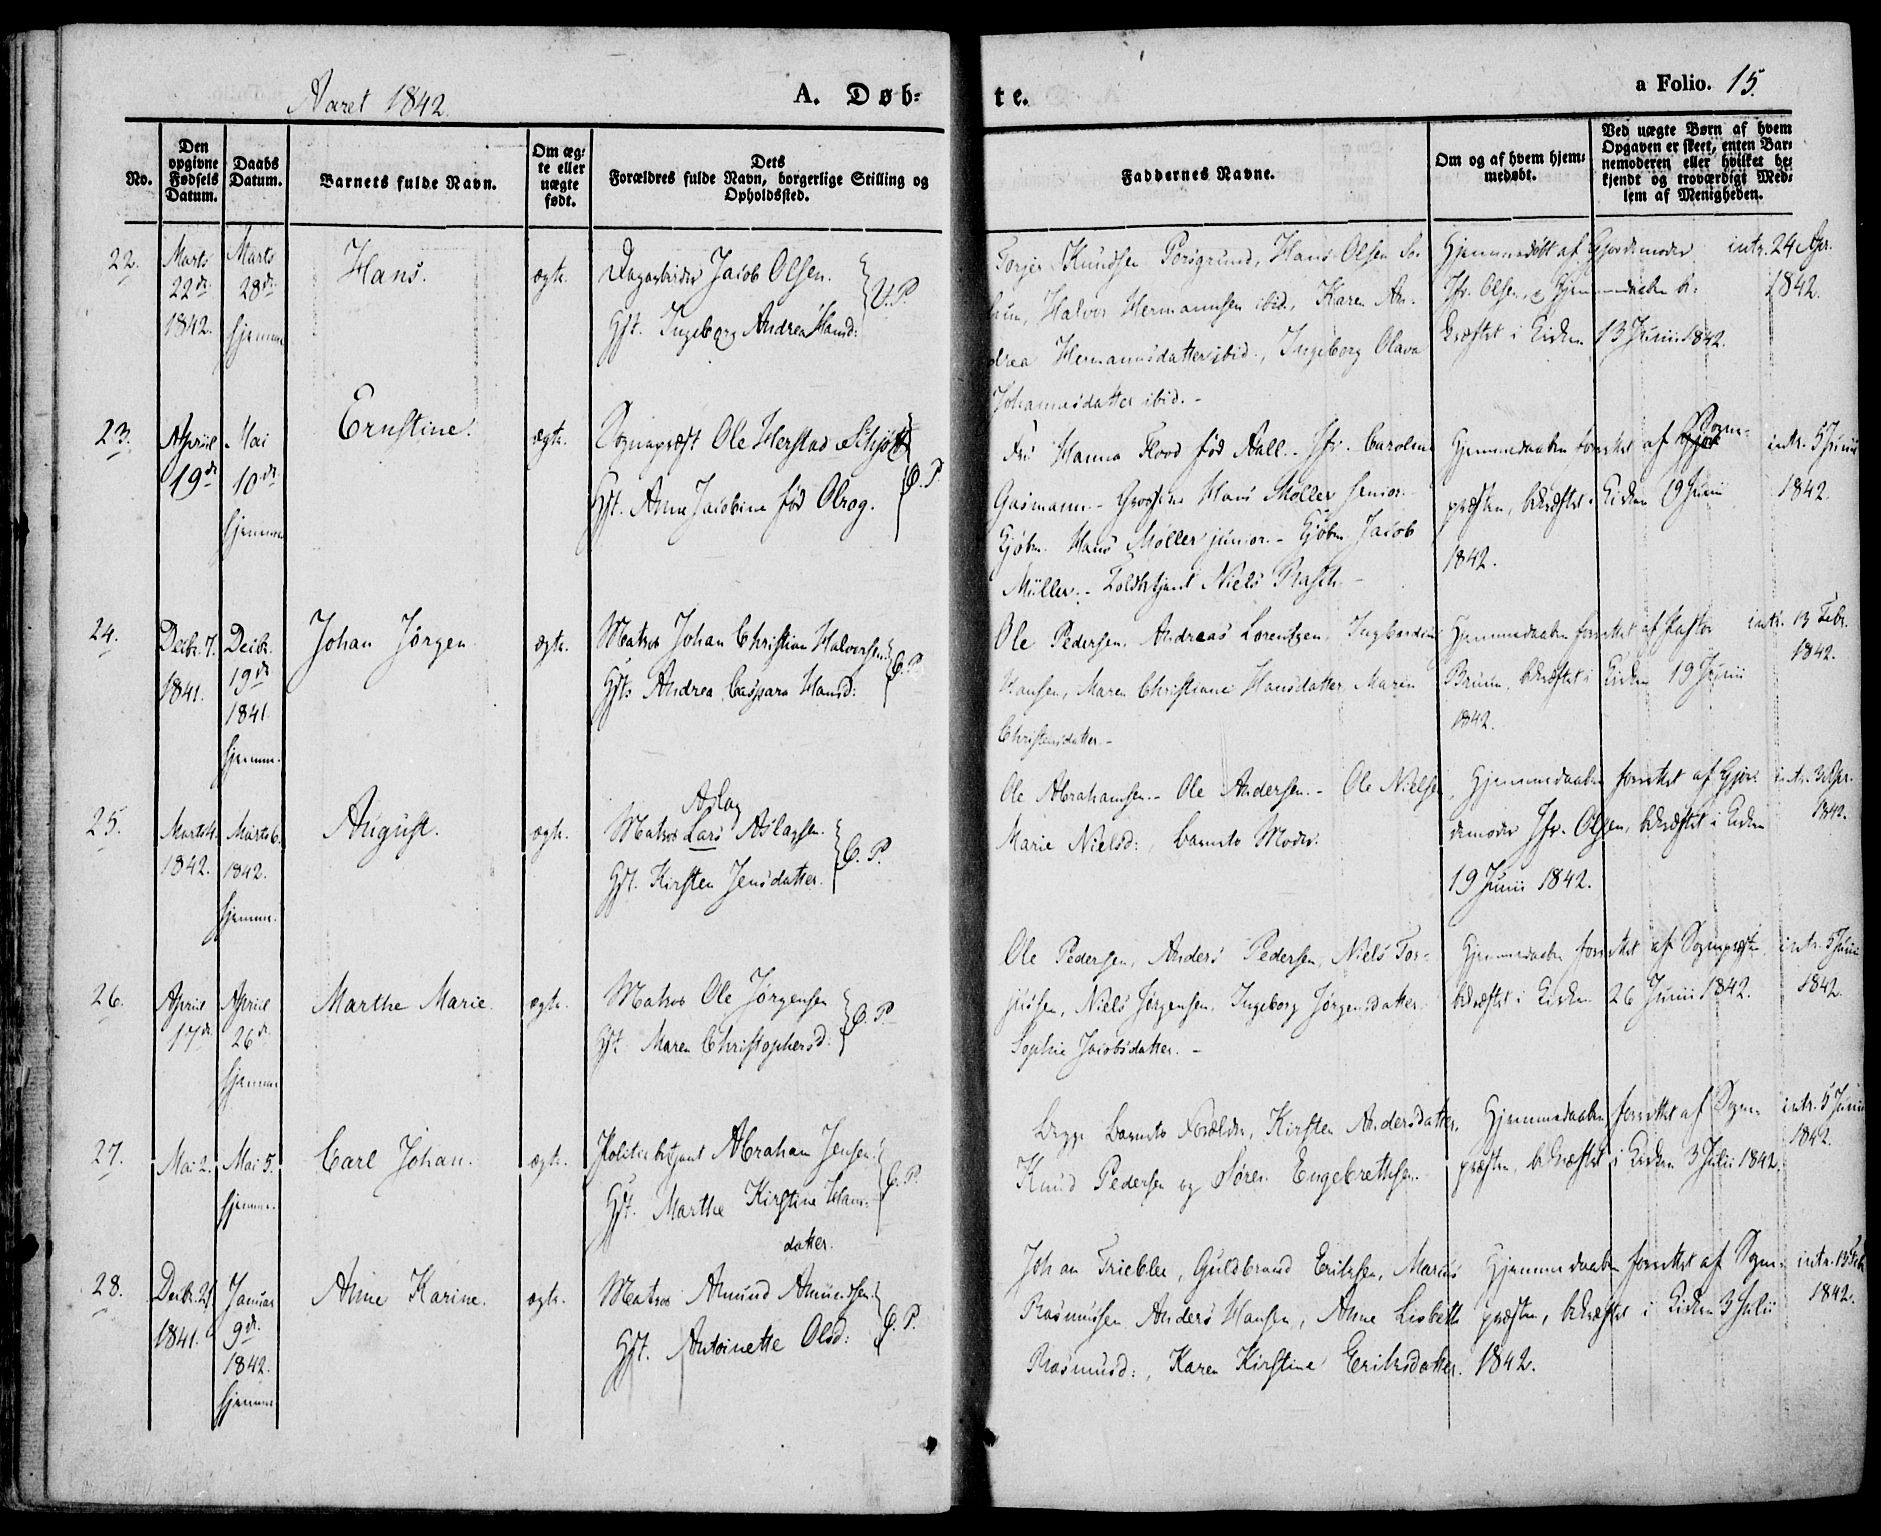 Aaret 1842.
A. Døb=
te.
a Folio. 15.
No.
Den
opgivne
Fødsels
Datum.
Daabs
Datum.
Barnets fulde Navn.
Om æg=
te eller
uægte
født.
Dets
Forældres fulde Navn, borgerlige Stilling og
Opholdssted.
Faddernes Navne.
Om og af hvem hjem=
medøbt.
Ved uægte Børn af hvem
Opgaven er skeet, enten Bar=
nemoderen eller hvilket be=
kjendt og troværdigt Med=
lem af Menigheden.
22.
Marts
22de
1842.
Marts
28de
hjemme
Hans.
ægte.
Dagarbeider Jacob Olsen.
Hst. Ingeborg Andrea Hansd:
V. P.
Torger Knudsen Porsgrund, Hans Olsen
Halvor Hermannsen ibid, Karen An-
drea Hermannsdatter ibid., Ingeborg Olava
Johannesdatter ibid. -
Hjemmedøbt af Gjordemoder
Jfr. Olsen, Hjemmedaaben be-
kræftet i Kirken 13 Junii 1842.
intr. 24 Apr.
1842.
23.
April
19de
Mai
10de
hjemme
Ernstine.
ægte.
Sognepræst Ole Herstad Schjøtt
Hst. Anne Jacobine fød Olrog.
O. P.
Fru Hanna Flood fød Aall. - Jfr. Caroline
Gasmann - Grosserer Hans Møller senior. -
Kjøbm. Hans Møller junior. - Kjøbm. Jacob
Müller. - Toldbetjent Niels Rasch. -
Hjemmedaaben forrettet af Sogne-
præsten, bekræftet i Kirken 19 Junii
1842.
intr. 5 Junii
1842.
24.
Decbr. 7.
1841.
Decbr.
19de
1841
hjemme.
Johan Jørgen
ægte.
Matros Johan Christian Halvorsen.
Hst. Andrea Caspara Hansd:
O. P.
Ole Pedersen, Andreas Lorentzen,
Hansen, Maren Christiane Hansdatter, Maren
Christensdatter. -
Hjemmedaaben forrettet af Pastor
Bruun, bekræftet i Kirken 19 Junii
1842.
intr. 13 Febr.
1842.
25.
Marts 4.
1842.
Marts 6.
1842.
hjemme.
August.
ægte.
Aslag
Matros Lars Aslagsen.
Hst. Kirsten Jensdatter.
O. P.
Ole Abrahamsen. - Ole Andersen. - Ole Nielsen,
Marie Nielsd:, Barnets Moder.
Hjemmedaaben forrettet af Gjor-
demoder Jfr. Olsen, bekræftet i Kirken
19 Junii 1842.
intr. 3 Apr.
1842.
26.
April
17de
April
26de
hjemme
Marthe Marie.
ægte.
Matros Ole Jørgensen
Hst. Maren Christophersd:
O. P.
Ole Pedersen, Anders Pedersen, Niels Tor-
jussen, Niels Jørgensen, Ingeborg Jørgensdatter.
Sophie Jacobsdatter. -
Hjemmedaaben forrettet af Sognepræsten,
bekræftet i Kirken 26 Junii 1842.
intr. 5 Junii
1842.
27.
Mai 2.
Mai 5.
hjemme.
Carl Johan.
ægte.
Politiebetjent Abraham Jensen.
Hst. Marthe Kirstine Hans-
datter.
O. P.
Begge Barnets Forældre, Kirsten Andersdatter,
Knud Pedersen og Søren Engebrethsen.
Hjemmedaaben forrettet af Sogne-
præsten, bekræftet i Kirken 3 Julii 1842.
intr. 5 Junii
1842.
28.
Decbr. 21
1841.
Januar
9de
1842.
hjemme
Anne Karine.
ægte.
Matros Amund Amundsen.
Hst. Antoinette Olsd:
O. P.
Johan Triebler, Guldbrand Eriksen, Marius
Rasmussen, Anders Hansen, Anne Lisbeth
Rasmusd:, Karen Kirstine Eriksdatter.
Hjemmedaaben forrettet af Sogne-
præsten, bekræftet i Kirken 3 Julii
1842.
intr. 13 Febr.
1842.